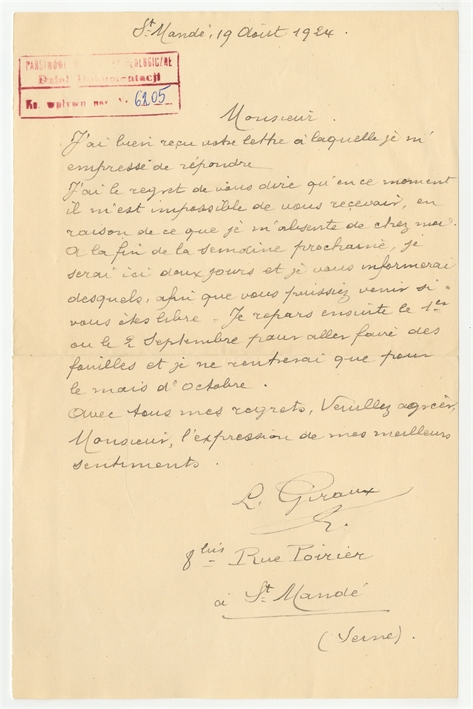 St Mandé, 19 Août 1924.
PAŃSTWOWE
Dział Dokumentacji
Ks. wpływu nr 6205
Monsieur.
J'ai bien reçu votre lettre à laquelle je m'
empresse de répondre
J'ai le regret de vous dire qu'en ce moment
il m'est impossible de vous recevoir, en
raison de ce que je m'absente de chez moi.
A la fin de la semaine prochaine, je
serai ici deux jours et je vous informerai
desquels, afin que vous puissiez venir si
vous êtes libre - Je repars ensuite le 1er
ou le 2 Septembre pour aller faire des
fouilles et je ne rentrerai que pour
le mois d'Octobre.
Avec tous mes regrets, Veuillez agréer,
Monsieur, l'expression de mes meilleurs
sentiments.
L. Giraux
9 bis Rue Poirier
à St Mandé
(Seine).